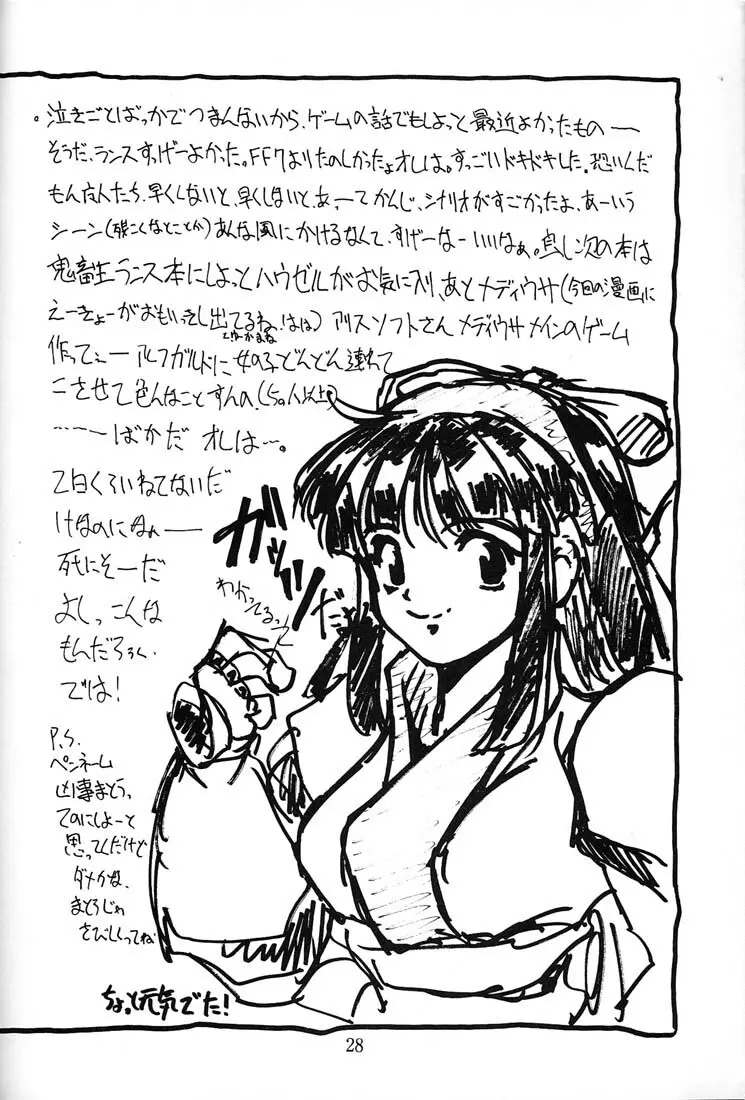 泣きごとばっかでつまんないから、ゲームの話でもしよっと最近よかったもの——
そうだ、ランスすっげーよかった。FF7よりたのしかったよオレは。すっごいドキドキした。恐いんだ
もん住人たち、早くしないと、早くしないと、あ、ーてかんじ、シナリオがすごかったよ、あーいう
シーン(強こくなとことか)あんな風にかけるなんて、すげーなーいいなぁ。良し次の本は
鬼畜王ランス本にしよっとハウゼルがお気に入り、あとメディウサ(今回の漫画に
えーきょーがおもいきし出てるね、はは)アリスソフトさんメディウサメインのゲーム
作ってェーアルフガルドに女の子どんどん連れて
こさせて色んなことすんの、(50人以上)
……——ばかだオレは…。
2日くらいねてないだ
けなのになぁ——
死にそーだ
よしっこんな
もんだろぅ、
では!
ガッツ
だ
わかってるって
P.S.
ペンネーム
凶事まとう、
てのにしよーと
思ってんだけど
ダメかな、
まとうじゃ
さびしくってね
ちょっと元気でた!
28